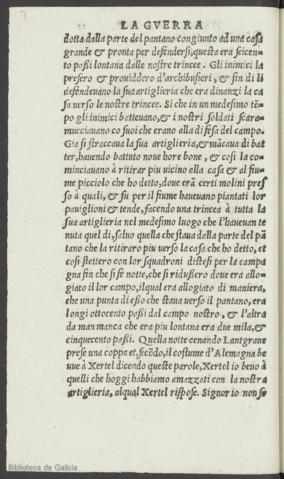 LA GVERRA
dotta dalla parte del pantano congiunto ad una casa
grande & pronta per defendersi, questa era seicen-
to passi lontana dalle nostre trincee. Gli inimici la
presero & prouiddero d'archibusieri, & fin di li
defendeuano la sua artiglieria che era dinanzi la ca
sa uerso le nostre trincee. Si che in un medesimo tẽ-
po gli inimici batteuano, & i nostri soldati scara-
mucciauano co suoi che erano alla difesa del campo.
Gia si straccaua la sua artiglieria, & mãcaua di bat
ter, hauendo battuto noue hore bone, & cosi la co-
minciauano à ritirar piu uicino alla casa & al fiu-
me picciolo che ho detto, doue erã certi molini pres
so à quali, & su per il fiume haueuano piantati lor
pauiglioni & tende, facendo una trincea à tutta la
sua artiglieria nel medesimo luogo che l'haueuan te
nuta quel di, saluo quella che staua dalla parte del pã
tano che la ritiraro piu uerso la casa che ho detto, et
cosi stettero con lor squadroni distesi per la campa
gna fin che si fe notte, che si ridussero doue era allo-
giato il lor campo, il qual era allogiato di maniera,
che una punta di esso che staua uerso il pantano, era
longi ottocento passi dal campo nostro, & l'altra
da man manca che era piu lontana era due mila, &
cinquecento passi. Quella notte cenando Lantgraue
prese una coppa et, secõdo, il costume d'Alemagna be
uue à Xertel dicendo queste parole, Xertel io beuo à
quelli che hoggi habbiamo amazzati con la nostra
artiglieria, al qual Xertel rispose. Signor io non so
Biblioteca de Galicia